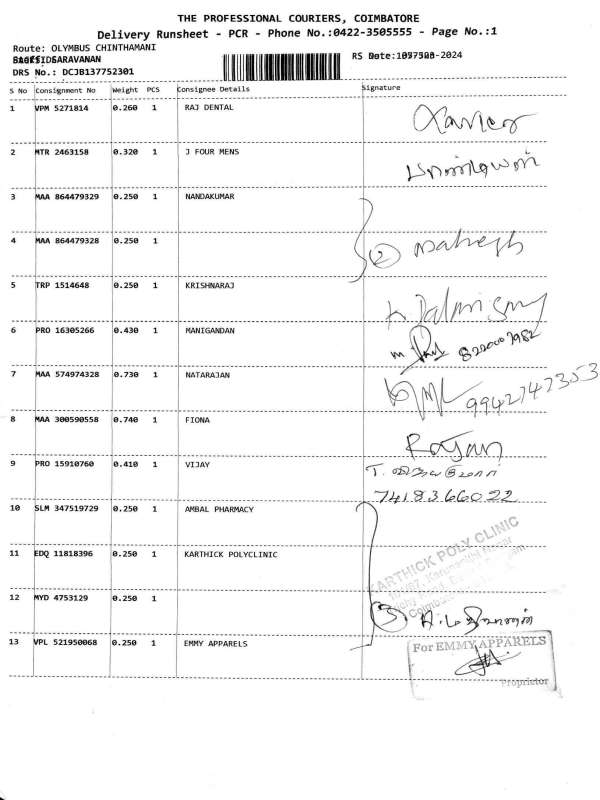 THE PROFESSIONAL COURIERS, COIMBATORE
Delivery Runsheet - PCR - Phone No.:0422-3505555 - Page No.:1
Route: OLYMBUS CHINTHAMANI
SARAVANAN
DRS No.: DCJB137752301
S No Consignment No Weight PCS Consignee Details Signature
1 VPM 5271814 0.260 1 RAJ DENTAL Xavier
2 MTR 2463158 0.320 1 J FOUR MENS
3 MAA 864479329 0.250 1 NANDAKUMAR
4 MAA 864479328 0.250 1 2 Mahesh
5 TRP 1514648 0.250 1 KRISHNARAJ
6 PRO 16305266 0.430 1 MANIGANDAN
7 MAA 574974328 0.730 1 NATARAJAN 9942747353
8 MAA 300590558 0.740 1 FIONA Rajan
9 PRO 15910760 0.410 1 VIJAY T.
7418366022
10 SLM 347519729 0.250 1 AMBAL PHARMACY
11 EDQ 11818396 0.250 1 KARTHICK POLYCLINIC KARTHICK POLY CLINIC
12 MYD 4753129 0.250 1
13 VPL 521950068 0.250 1 EMMY APPARELS For EMMY APPARELS
Proprietor